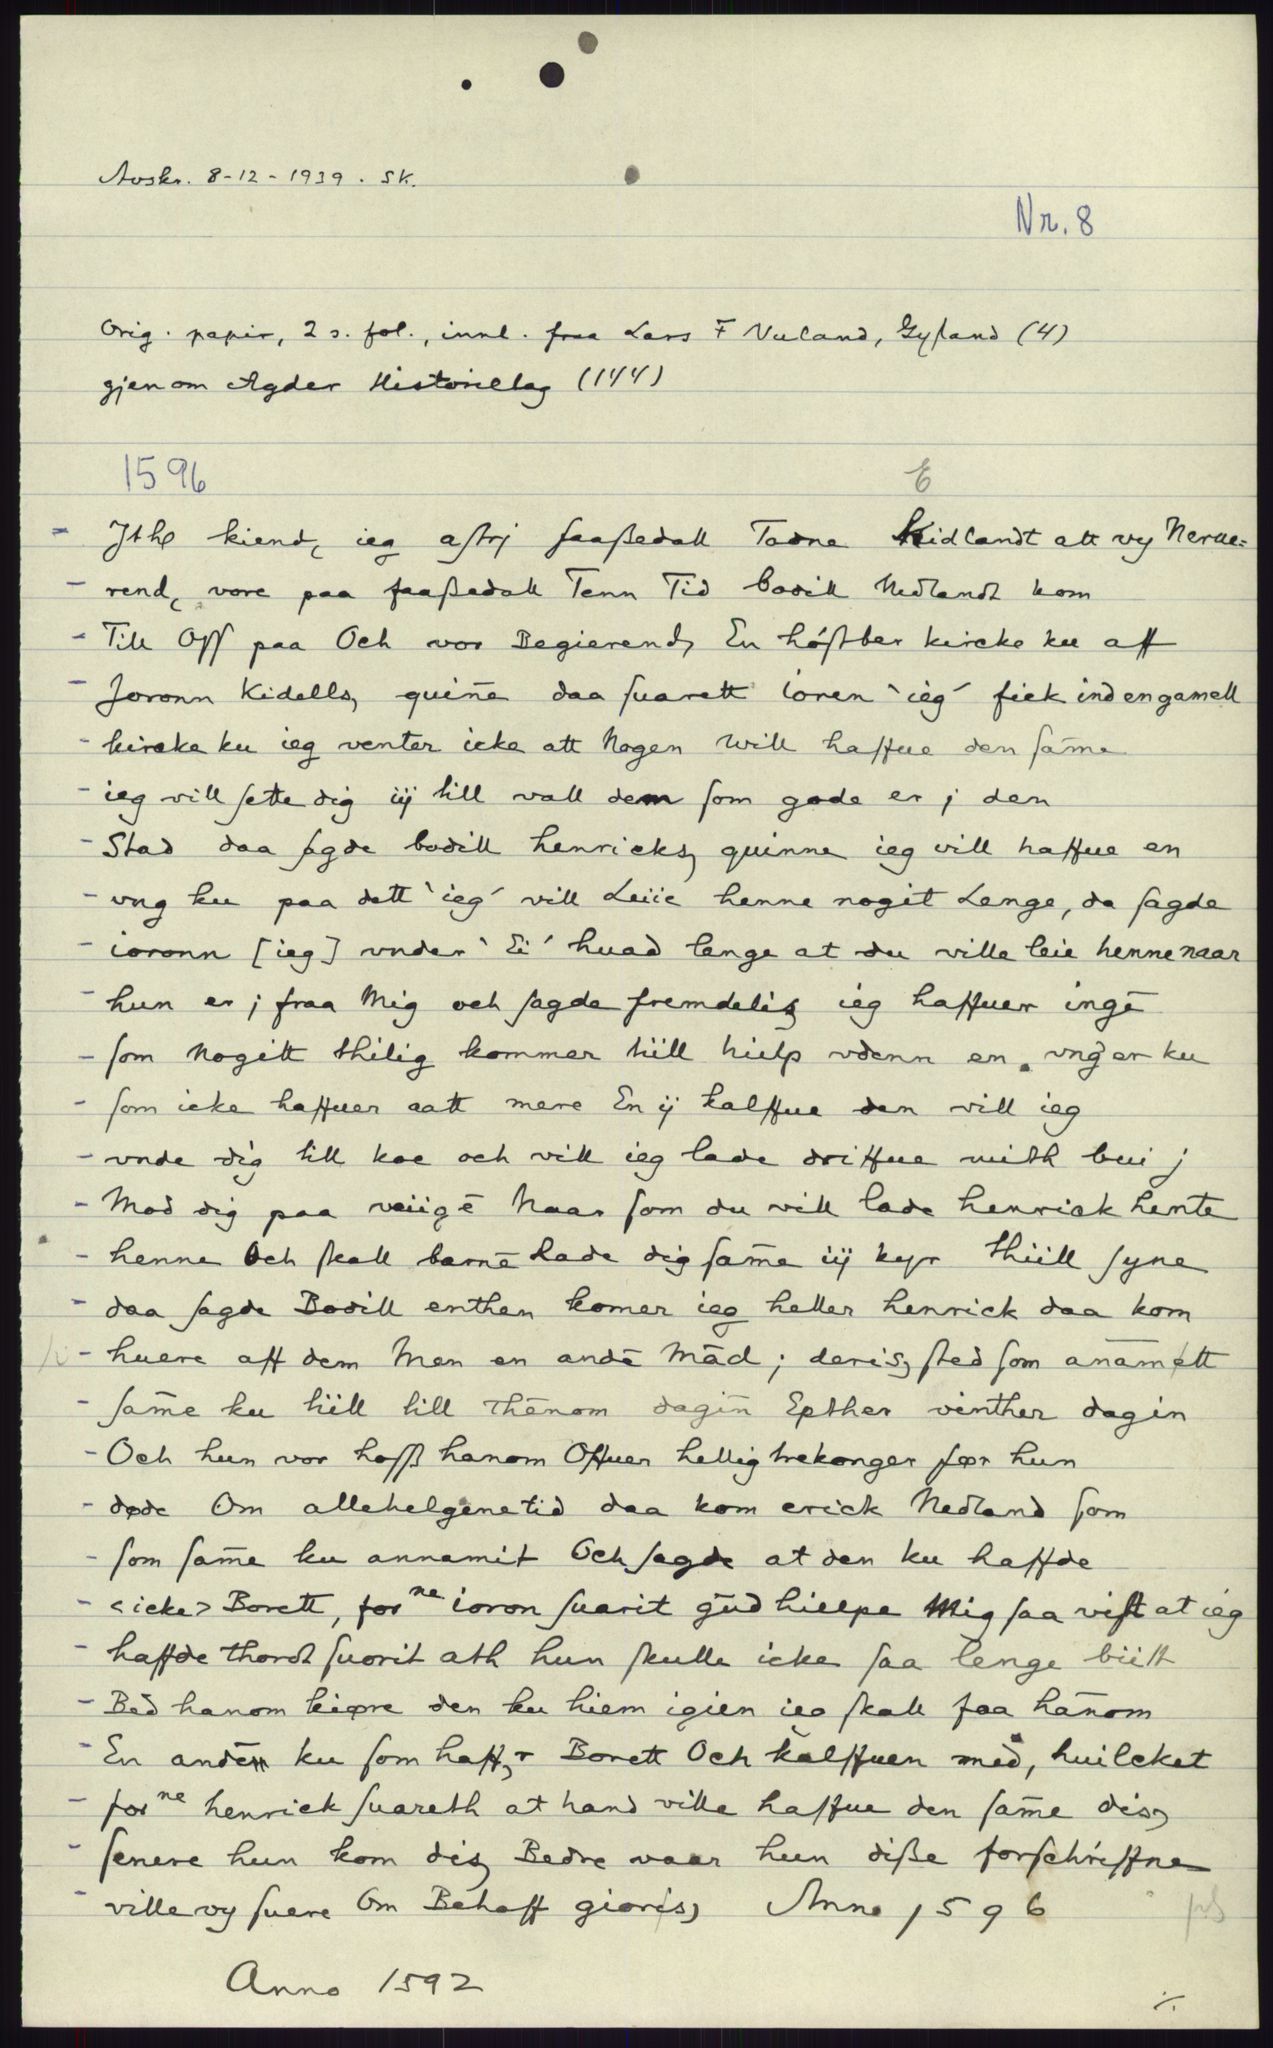 Avskr. 8-12-1939. SK.
Nr. 8
Orig. papir, 2 s. fol., innl. fraa Lars F Nuland, Gyland (4)
gjenom Agder Historielag (144)
1596
E
- Jthe kiend, ieg astrj faaßedall Tadne Kidlandt att vy Nerue=
- rend, vore paa faaßedall Tenn Tid bodill Nedlandt kom
- Till Off paa Och vor Begierend, En höstber kircke ku aff
- Joronn Kidells, quiñe daa suarett ioren `ieg´ fick ind en gamell
- kircke ku ieg venter icke att Nogen will haffue den same
- ieg vill sette dig iij till vall dem som gode er j den
- Stad daa sagde bodill henricks, quinne ieg vill haffue en
- vng ku paa dett `ieg´ vill Leiie henne nogit Lenge, da sagde
- ioronn [ieg] vnder `Ei´ huad lenge at du ville leie henne naar
- hun er j fraa Mig och sagde fremdelis ieg haffuer ingē
- som Nogitt thilig kommer tiill hielp vdenn en vnger ku
- som icke haffuer aatt mere En ij kalffue den vill ieg
- vnde dig till koe och vill ieg lade driffue mith bui j
- Mod dig paa veiigē Naar som du vill lade henrick hente
- henne Och skall barnē lade dig same iij kyr thiill syne
- daa sagde Bodill enthen komer ieg heller henrick daa kom
- huere aff dem Men en andē Mād j deris, sted som anamett
- same ku tiill till Thēnom dagiñ Epther vinther dagin
- Och hun vor hoss hanom Offuer hellig trekonger før hun
- døde Om allehelgene tid daa kom erick Nedland som
- som same ku annamit Och sagde at den ku haffde
- <icke> Borett, for ne ioron suarit gud hielpe Mig saa vist at ieg
- haffde thordt suorit ath hun skulle icke saa lenge biitt
- Bed hanom kiøre den ku hiem igien ieg skall faa hānom
- En andēn ku som haffr Borett Och kalffuen med, huilcket
- for ne henrick suareth at hand ville haffue den same dis,
- senere hun kom dis, Bedre vaar hun diße forschriffne
- ville vy suere Om Behoff gioris, Anno 1596
Anno 1592
./.